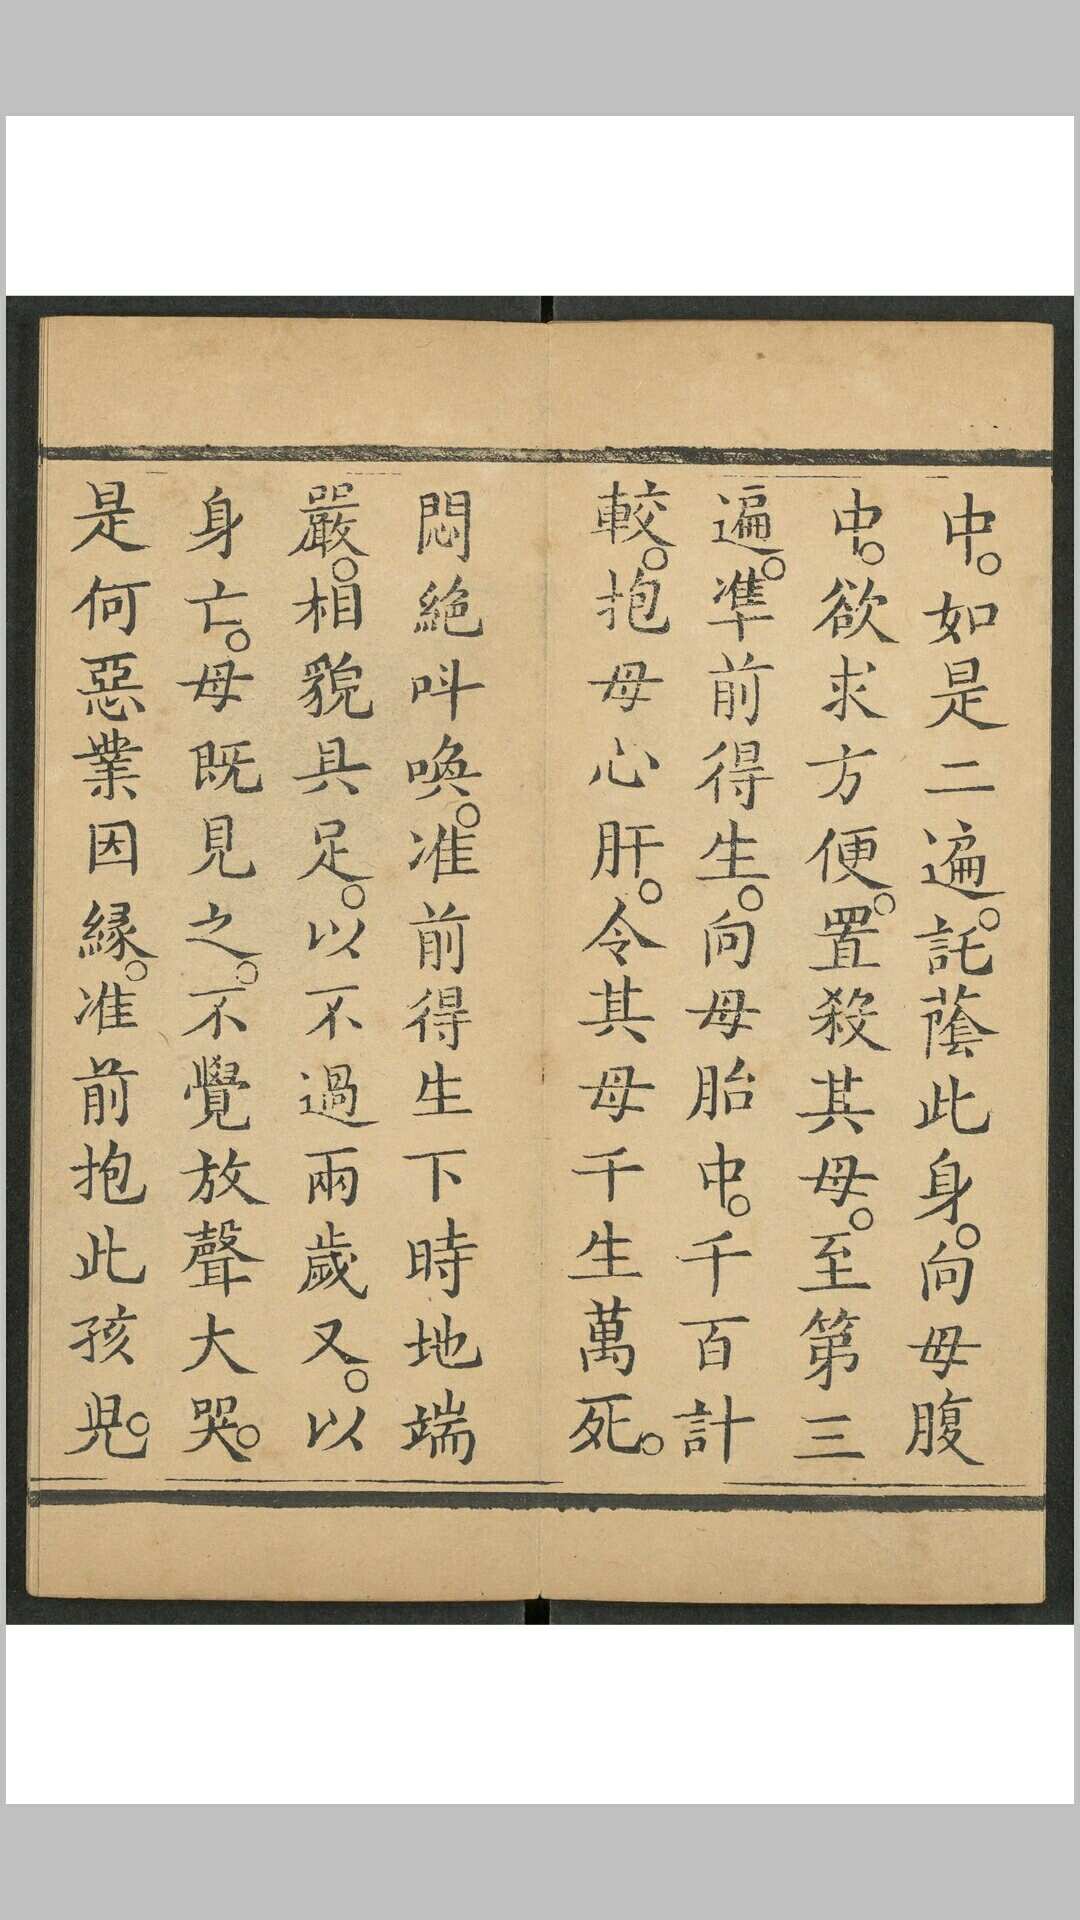 中。如是二遍。託蔭此身。向母腹
中。欲求方便。置殺其母。至第三
遍。準前得生。向母胎中。千百計
較。抱母心肝。令其母千生萬死。
悶絕呌喚。准前得生下時地端
嚴。相貌具足。以不過兩歲又。以
身亡。母既見之。不覺放聲大哭。
是何惡業因緣。准前抱此孩兒。